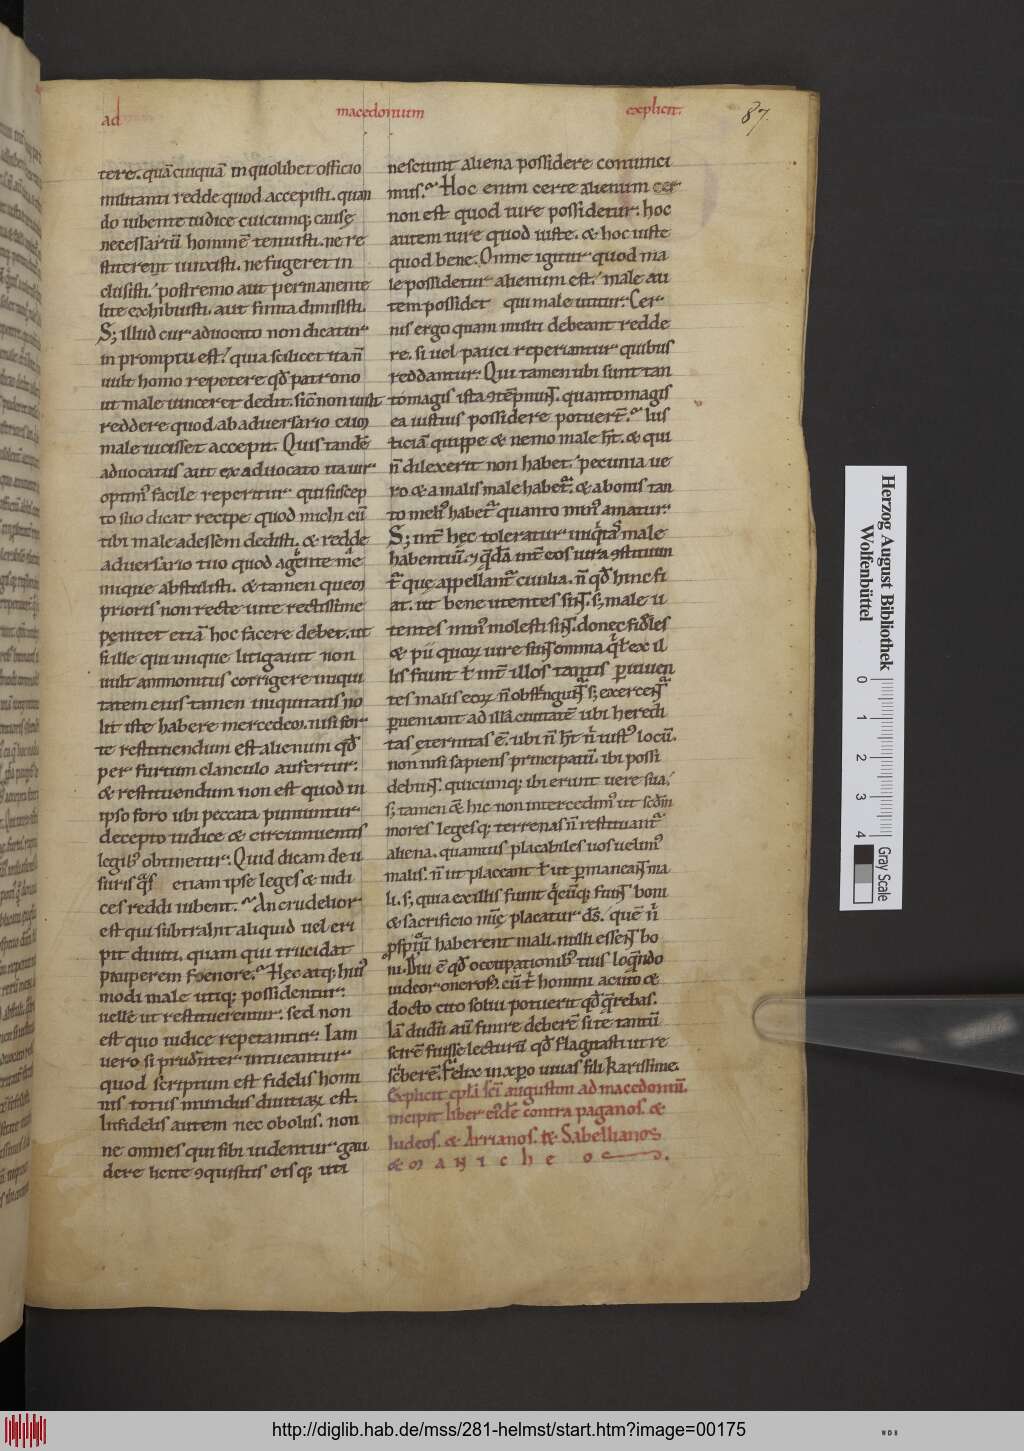 ad macedonium explicit.
87
tere. quā cuiquā in quolibet officio
militanti redde quod accepisti. quan
do iubente iudice cuicumq; cause
necessariū hominē tenuisti. ne re
sisteret iunxisti. ne fugeret in
clusisti. postremo aut permanente
lite exhibuisti. aut finita dimisisti.
S; illud cur aduocato non dicatur
in promptu est. quia scilicet ita n̄
uult homo repetere qđ patrono
ut male uinceret dedit. sic̄ non uult
reddere quod ab aduersario cum
male uicisset accepit. Quis tandē
aduocatus aut ex aduocato ita uir
optim' facile reperitur qui suscep
to suo dicat recipe quod michi cū
tibi male adessem dedisti. & redde
aduersario tuo quod agente me
inique abstulisti. & tamen quem
prioris non recte uite rectissime
penitet etiā hoc facere debet. ut
si ille qui inique litigauit non
uult ammonitus corrigere iniqui
tatem eius tamen iniquitatis no
lit iste habere mercedem. nisi for
te restituendum est alienum qđ
per furtum clanculo aufertur.
& restituendum non est quod in
ipso foro ubi peccata puniuntur
decepto iudice & circumuentis
legib' obtinetur. Quid dicam de u
suris etiam ipse leges & iudi
ces reddi iubent. An crudelior
est qui subtrahit aliquid uel eri
pit diuiti, quam qui trucidat
pauperem foenore. Hec atq; hui'
modi male utiq; possidentur.
uellē ut restituerentur. sed non
est quo iudice repetantur. Iam
uero si prudēter intueantur
quod scriptum est fidelis homi
nis totus mundus diuitiaꝝ est.
Infidelis autem nec obolus. non
ne omnes qui sibi uidentur gau
dere licite ꝯquisitis eisq; uti
nesciunt aliena possidere conuinci
mus. Hoc enim certe alienum cer
non est quod iure possidetur. hoc
autem iure quod iuste. & hoc iuste
quod bene. Omne igitur quod ma
le possidetur alienum est. male au
tem possidet qui male utitur. Cer
nis ergo quam multi debeant redde
re. si uel pauci reperiantur quibus
reddantur. Qui tamen ubi sunt tan
to magis ista ꝯtēpnūt. quanto magis
ea iustius possidere potuerī. Ius
ticiā quippe & nemo male ht̄. & qui
n̄ dilexerit non habet. pecunia ue
ro & a malis male habet̄. & a bonis tan
to meli' habet̄ quanto min' amatur.
S; int̄ hec toleratur iniqͥtas male
habentiū. & qͥdā int̄ eos iura ꝯstituun
t̄ que appellant̄ ciuilia. n̄ qđ hinc fi
at. ut bene utentes sint. s; male u
tentes min' molesti sint. donec fideles
& pii quoꝝ iure sunt omnia qͥ t̄ ex il
lis fiunt t̄ int̄ illos tantis̄ p uiuen
tes malis eoꝝ n̄ obstringunt̄ s; exercent̄
perueniant ad illā ciuitatē ubi heredi
tas eternitas ē. ubi n̄ ht̄ n̄ iust' locū.
non nisi sapiens principatū. ibi possi
debunt. quicumq; ibi erunt uere sua.
s; tamen & hic non intercedim' ut scdm
mores legesq; terrenas n̄ restituant̄
aliena. quamuis placabiles uos uelim'
malis. n̄ ut placeant t̄ ut permaneant ma
li. s; quia ex illis fiunt qͥcūq; fiunt boni
& sacrificio mīe placatur ds̄. quē n̄
ppiciū haberent mali. nulli essent bo
ni. Diu ē qđ occupationib' tuis loqͤndo
uideor oneros'. cū t̄ homini acuto &
docto cito solui potuerit qđ qͤrebas.
Iā dudū aū finire deberē si te tantū
scirē fuisse lecturū qđ flagitasti ut re
scͥberē. Felix in xpo uiuas fili karissime.
Explicit epla sci augustini ad macedoniū.
incipit liber eiđē contra paganos. &
Iudeos. & Arrianos. & Sabellianos
& manicheos.
Herzog August Bibliothek
Wolfenbüttel
0 1 2 3 4
Gray Scale
http://diglib.hab.de/mss/281-helmst/start.htm?image=00175
WDB